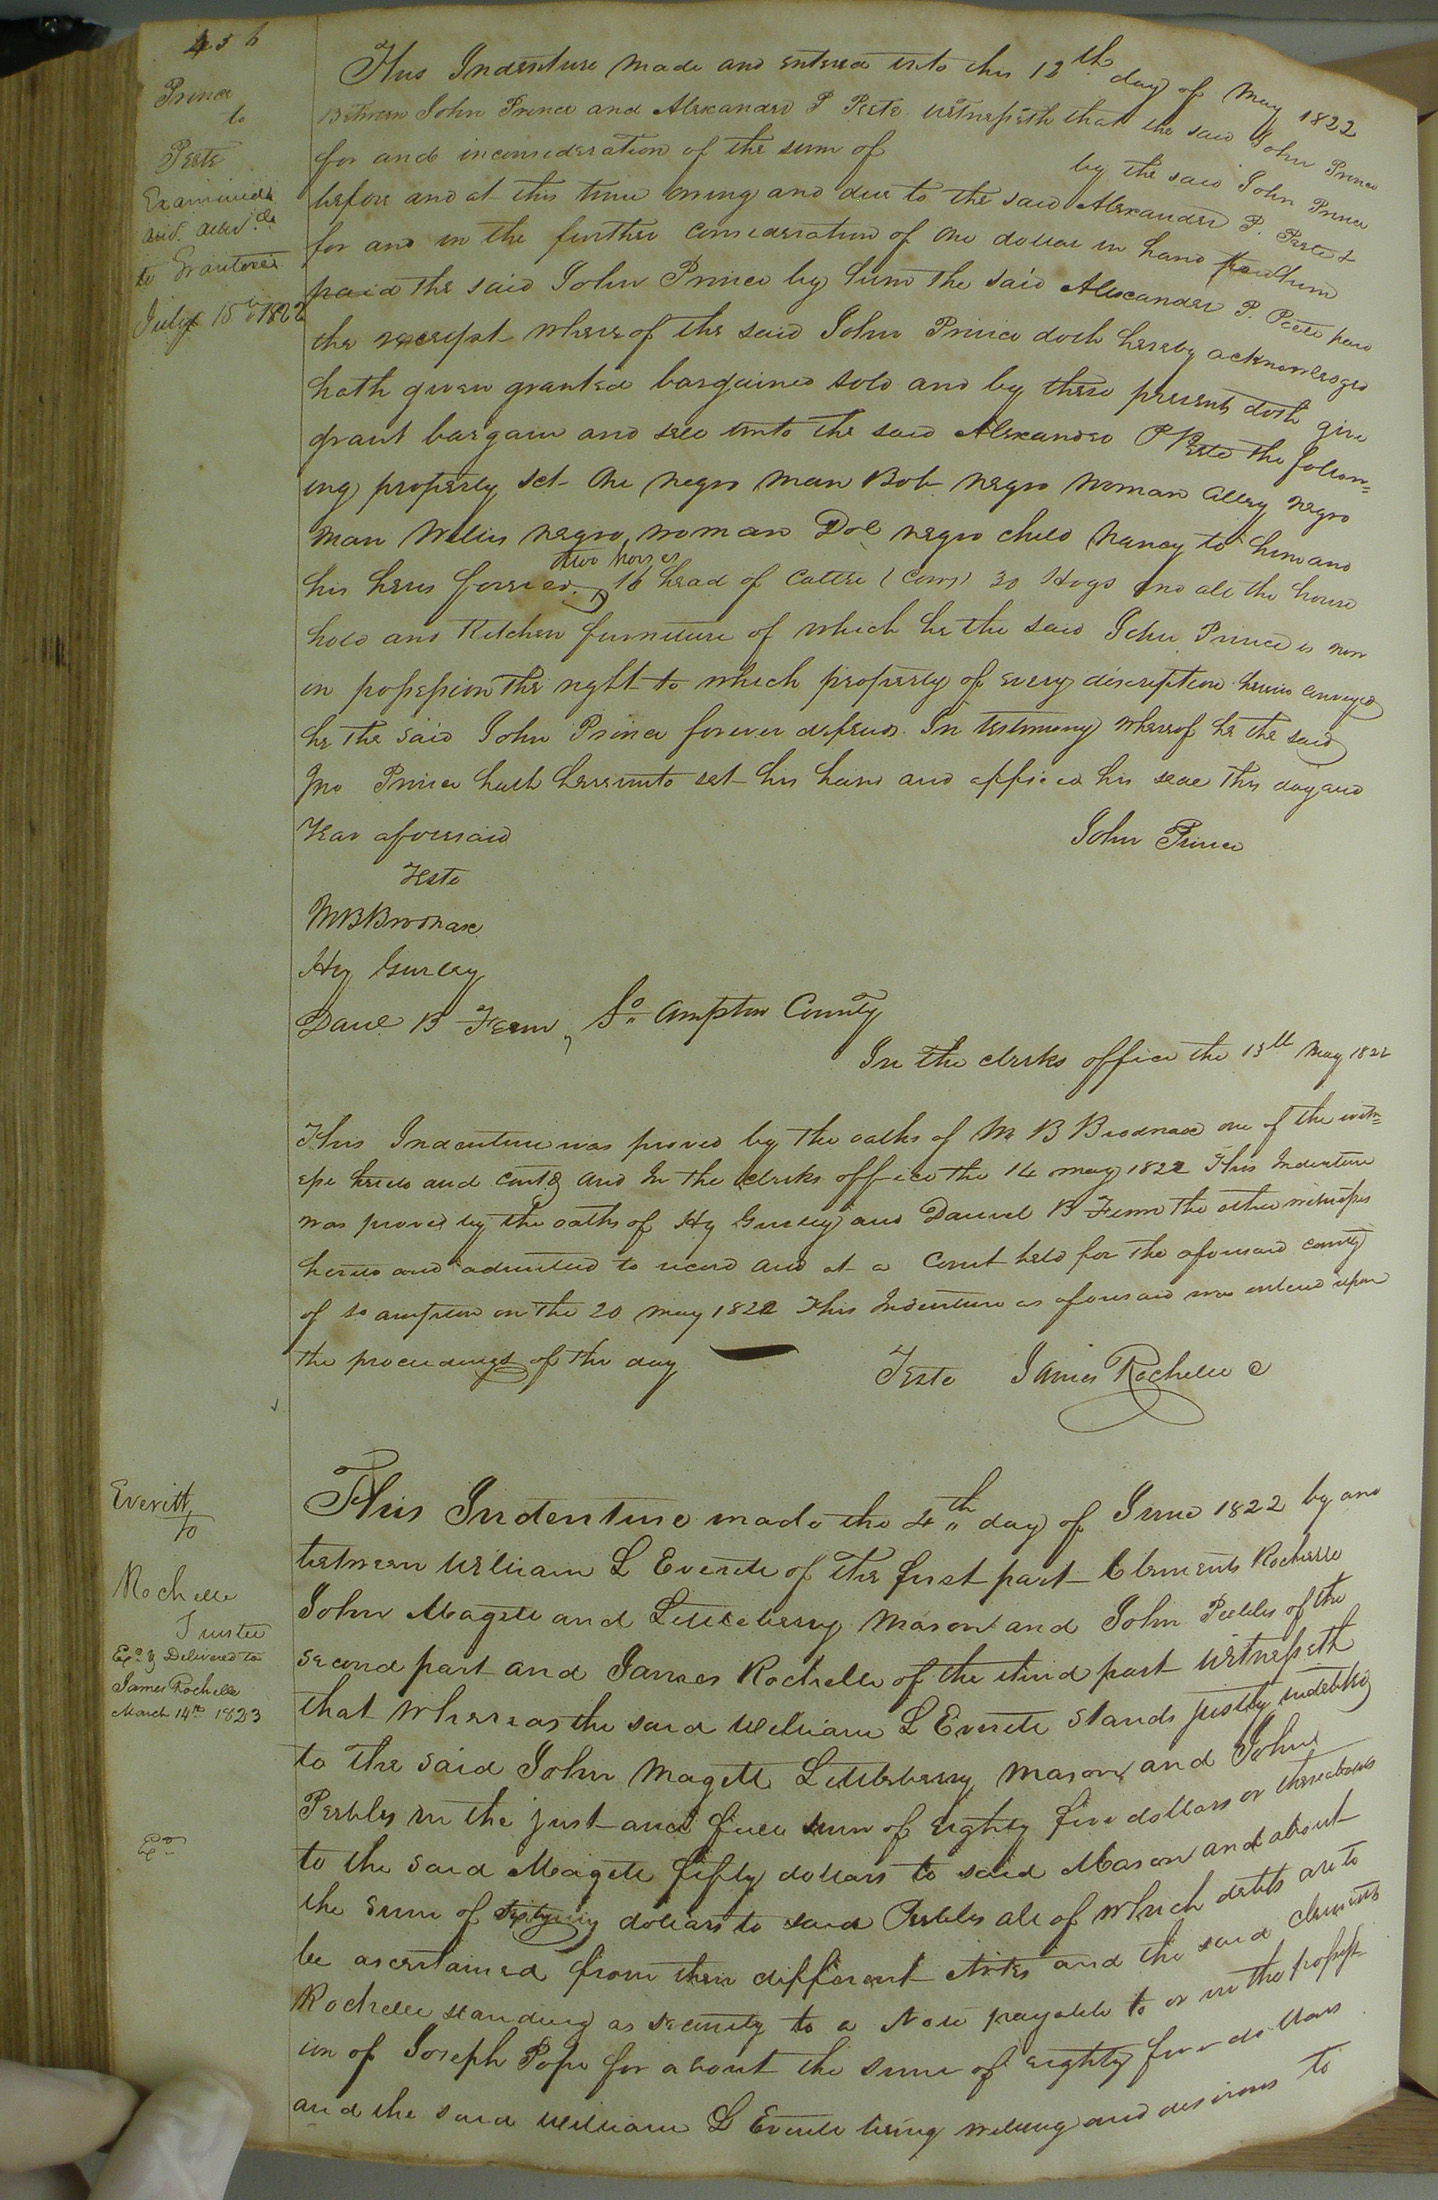 456
Prince
to
Peete
Examined
and deliv.d
to Grantees
July 15th 1822
This Indenture made and entered into this 12th day of May 1822
Between John Prince and Alexander P Peete witnesseth that the said John Prince
for and inconsideration of the sum of by the said John Prince
before and at this time owing and due to the said Alexander P. Peete &
for and in the further consideration of one dollar in hand
paid the said John Prince by him the said Alexander P. Peete paid
the receipt whereof the said John Prince doth hereby acknowledged
hath given granted bargained sold and by these presents doth give
grant bargain and sell unto the said Alexander P Peete the follow=
ing property set One negro man Bob negro woman Alley negro
man Willis negro woman Dol negro child Nancy to him and
two horses
his heirs forever. 16 head of Cattle (Cows) 30 Hogs and all the house
hold and Kitchen furniture of which he the said John Prince is now
in possession the right to which property of every discription herein conveyed
he the said John Prince forever defend. In testimony whereof he the said
Jno Prince hath hereunto set his hand and affixed his seal this day and
Year aforesaid John Prince
Teste
W B Brodnax
Hy Gurley
Danl B Fenn, So. ampton County
In the clerks office the 13th May 1822
This Indenture was proved by the oaths of W B Brodnax one of the witn=
ess hereto and contd and In the clerks office the 14 may 1822 This Indenture
was proved by the oaths of Hy Gurley and Daniel B Fenn the other witnesses
hereto and admitted to record and at a Court held for the aforesaid county
of So ampton on the 20 may 1822 This Indenture as aforesaid was entered upon
the proceedings of the day
Teste James Rochelle C
Everitt
to
Rochelle
Trustee
Exd & Delivered to
James Rochelle
March 14th 1823
Exd
This Indenture made the 4th day of June 1822 by and
between William L Everitt of the first part Clements Rochelle
John Magett and Littleberry Mason and John Peebles of the
second part and James Rochelle of the third part witnesseth
that whereas the said William L Everitt stands justly indebted
to the said John Magett Littleberry Mason and John
Peebles in the just and full sum of eighty five dollars or thereabouts
to the said Magett fifty dollars to said Mason and about
the sum of dollars to said Peebles all of which debts are to
be ascertained from their different Notes and the said Clements
Rochelle standing as security to a Note payable to or in the possess
ion of Joseph Pope for about the sum of eighty four dollars
and the said William L Everitt being willing and desirous to